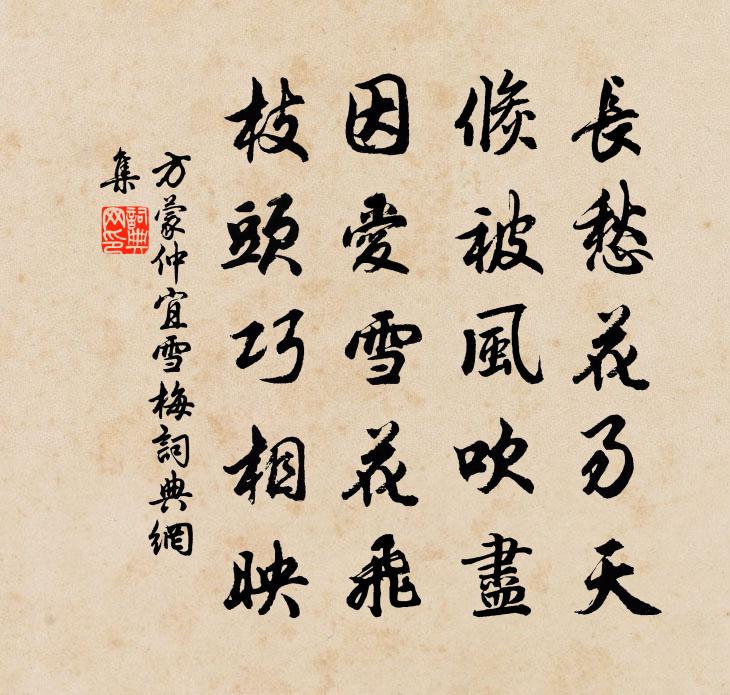 長愁花易天
倐被風吹盡
因愛雪花飛
枝頭巧相映
方蒙仲宜雪梅詞典網
集
詞典網印